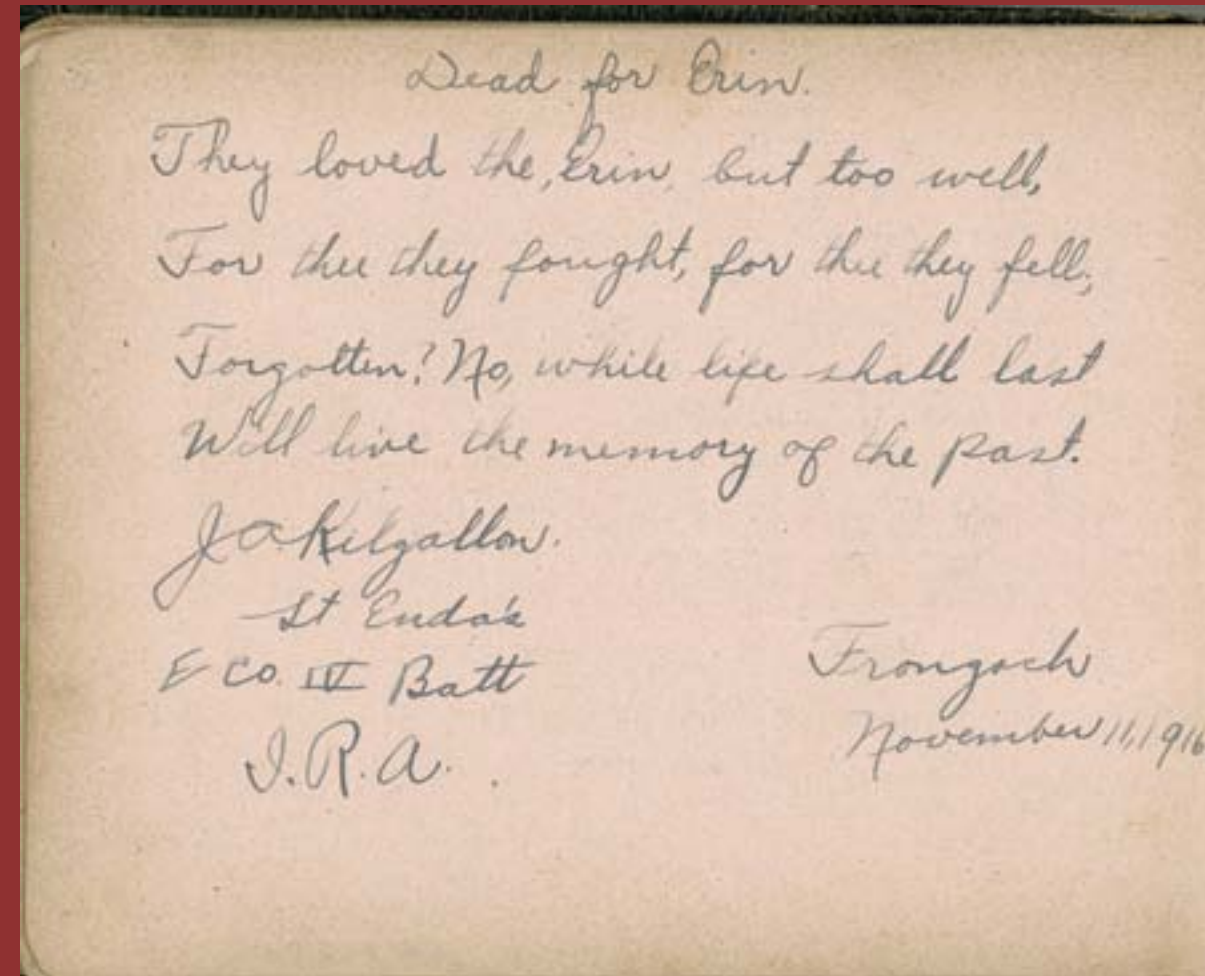 Dead for Erin.
They loved the, Erin, but too well,
For thee they fought, for thee they fell,
Forgotten? No, while life shall last
Will live the memory of the past.
J A Kilgallon.
St Enda's
E Co. IV Batt
I.R.A.
Frongoch
November 11, 1916